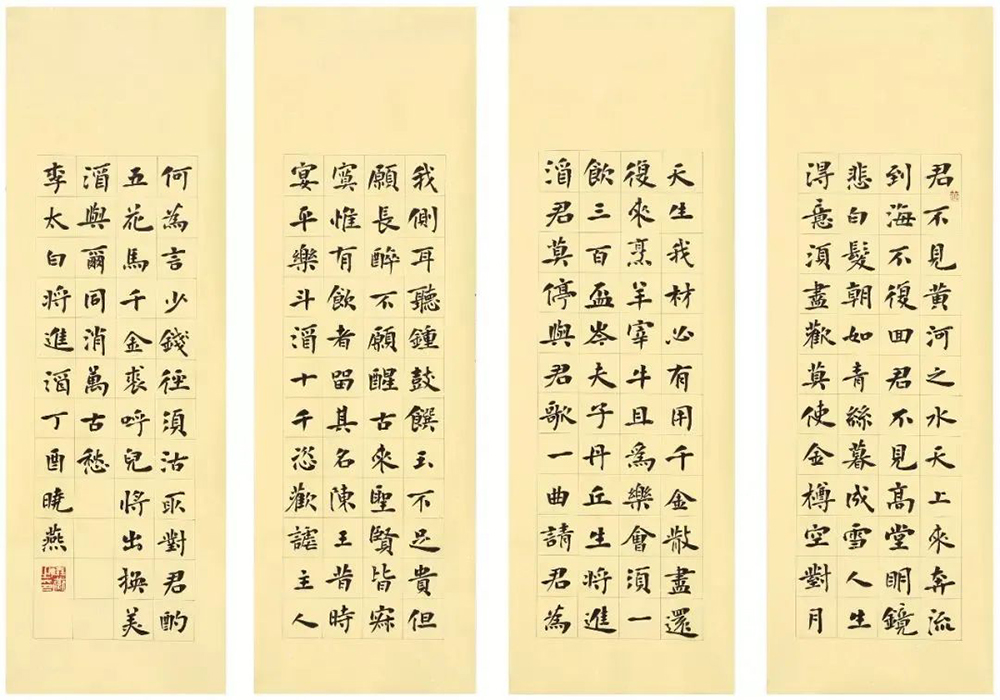 君不見黃河之水天上來奔流
到海不復回君不見高堂明鏡
悲白髮朝如青絲暮成雪人生
得意須盡歡莫使金樽空對月
天生我材必有用千金散盡還
復來烹羊宰牛且為樂會須一
飲三百盃岑夫子丹丘生將進
酒君莫停與君歌一曲請君為
我側耳聽鍾鼓饌玉不足貴但
願長醉不願醒古來聖賢皆寂
寞惟有飲者留其名陳王昔時
宴平樂斗酒十千恣歡謔主人
何為言少錢徑須沽取對君酌
五花馬千金裘呼兒將出換美
酒與爾同消萬古愁
李太白將進酒丁酉曉燕